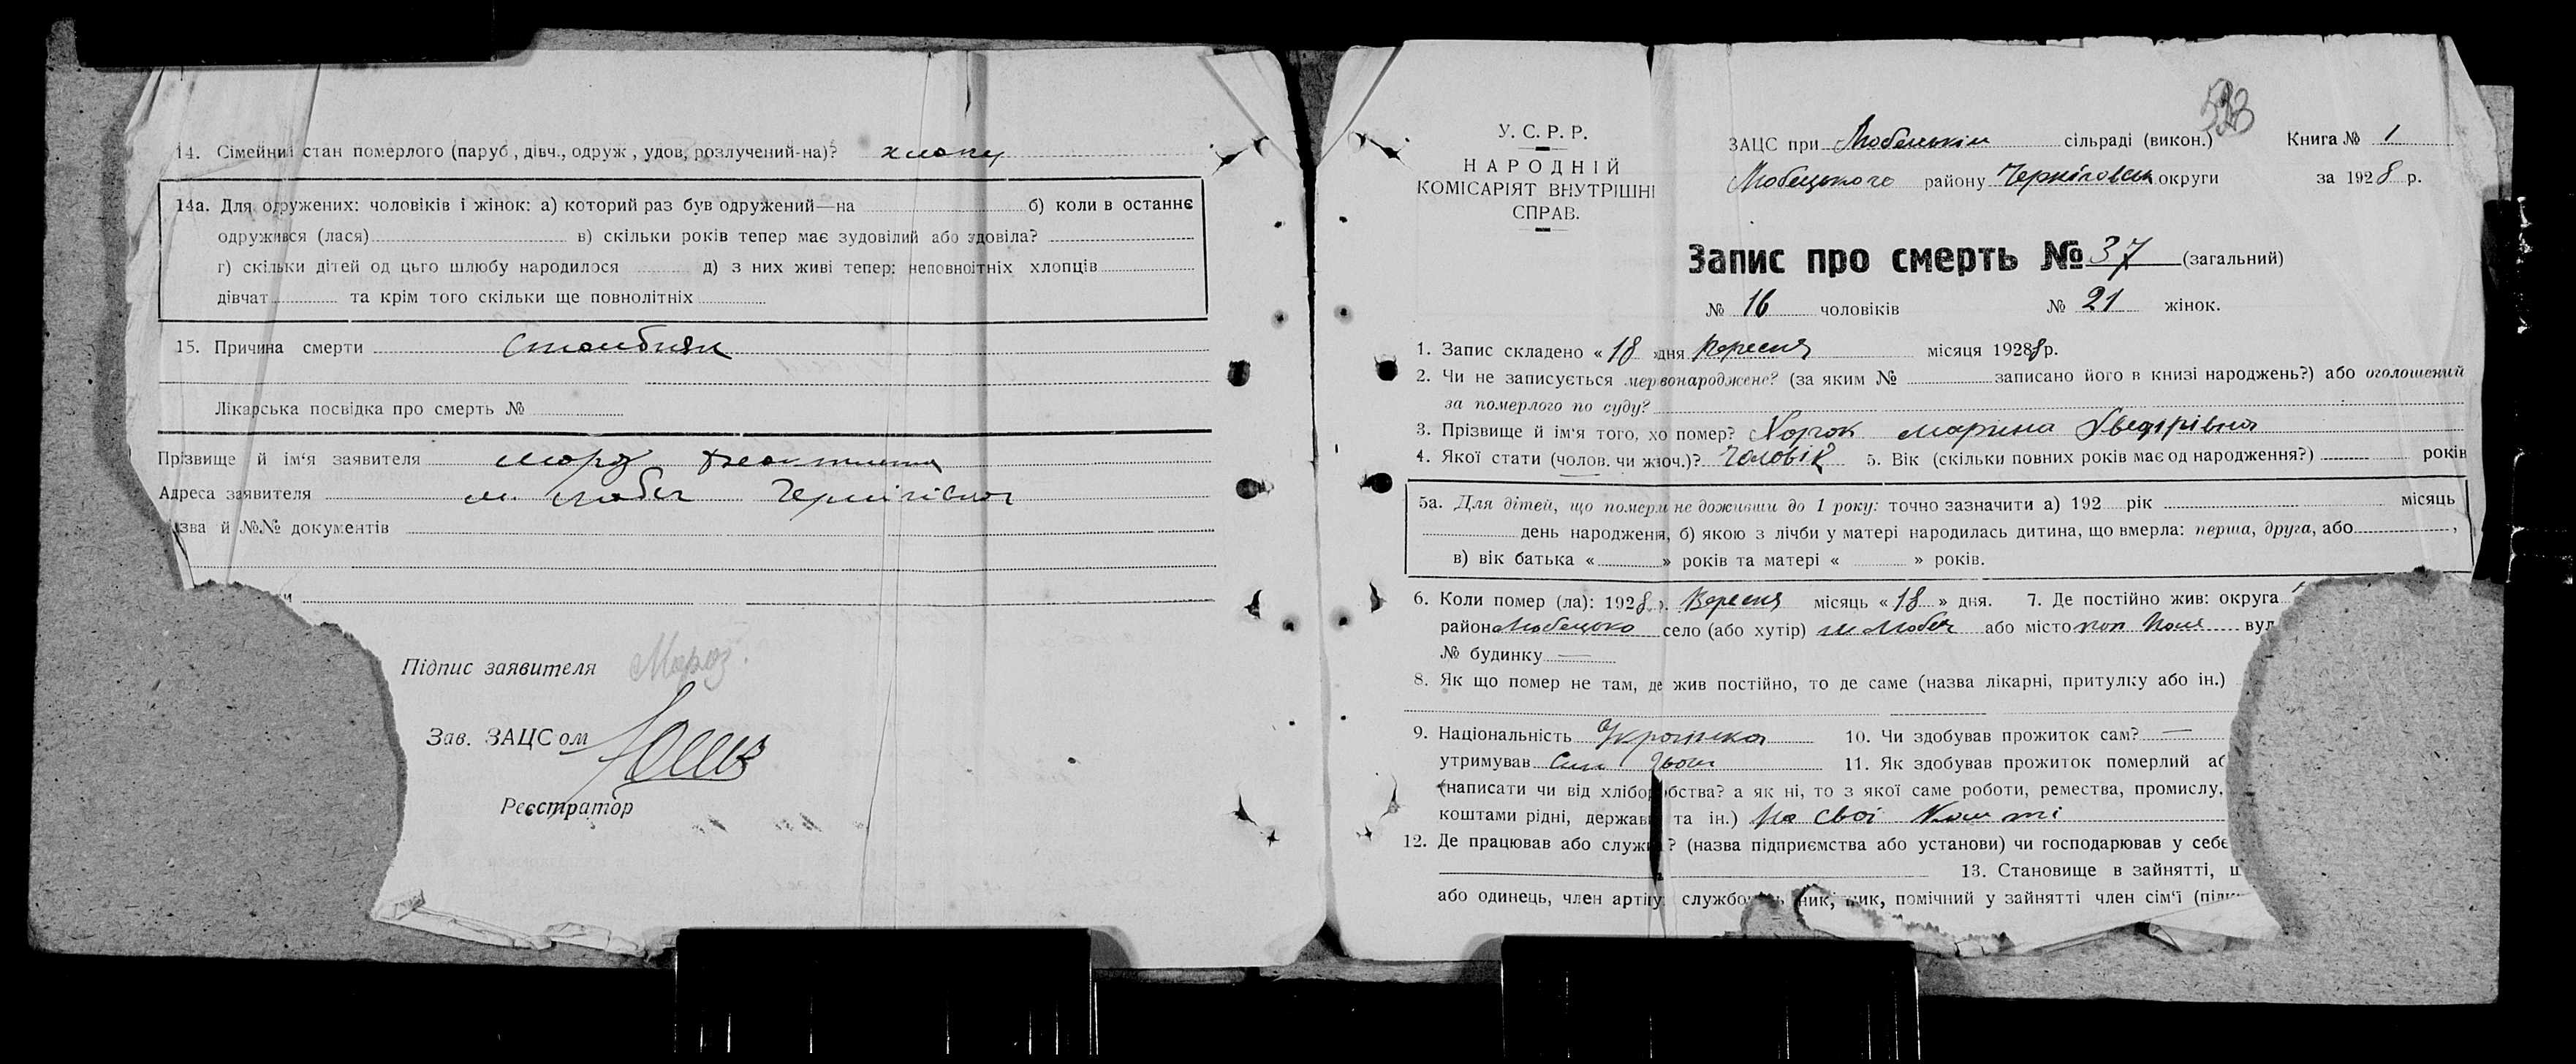 14. Сімейний стан померлого (паруб, дівч., одруж, удов, розлучений-на)?
14а. Для одружених: чоловіків і жінок: а) который раз був одружений—на б) коли в останнє
одружився (лася) в) скільки років тепер має зудовілий або здовіла?
г) скільки дітей од цього шлюбу народилося д) з них живі тепер: неповноітніх хлопців
дівчат та крім того скільки ще повнолітніх
15. Причина смерти Стовбняк
Лікарська посвідка про смерть №
Прізвище й ім'я заявителя Мороз
Адреса заявителя м. Любеч
зва й №№ документів
Підпис заявителя Мороз
Зав. ЗАЦСом
Реєстратор
533
У. С. Р. Р.
НАРОДНІЙ
КОМІСАРІЯТ ВНУТРІШНІ
СПРАВ.
ЗАЦС при Любецькім сільраді (викон.) Книга № 1
Любецького району Чернігівськ округи за 1928 р.
Запис про смерть № 37 (загальний)
№ 16 чоловіків № 21 жінок.
1. Запис складено «18 » дня Вересня місяця 1928 р.
2. Чи не записується мервонароджене? (за яким № записано його в книзі народжень?) або оголошений
за померлого по суду?
3. Прізвище й ім'я того, хо помер? Марина
4. Якої стати (чолов. чи жіоч.)? Чоловік 5. Вік (скільки повних років має од народження?) років
5а. Для дітей, що померли не доживши до 1 року: точно зазначити а) 192 рік місяць
день народження, б) якою з лічби у матері народилась дитина, що вмерла: перша, друга, або ,
в) вік батька « » років та матері « » років.
6. Коли помер (ла): 1928 р. Вересня місяць «18 » дня. 7. Де постійно жив: округа
район Любецько село (або хутір) м Любеч або місто вул
№ будинку —
8. Як що помер не там, де жив постійно, то де саме (назва лікарні, притулку або ін.)
9. Національність Українка 10. Чи здобував прожиток сам? —
утримував 11. Як здобував прожиток померлий аб
(написати чи від хліборобства? а як ні, то з якої саме роботи, ремества, промислу,
коштами рідні, держави та ін.) На свої Кошти
12. Де працював або служив? (назва підприємства або установи) чи господарював у себе
13. Становище в зайнятті,
або одинець, член артілу службо ник, ник, помічний у зайнятті член сім'ї